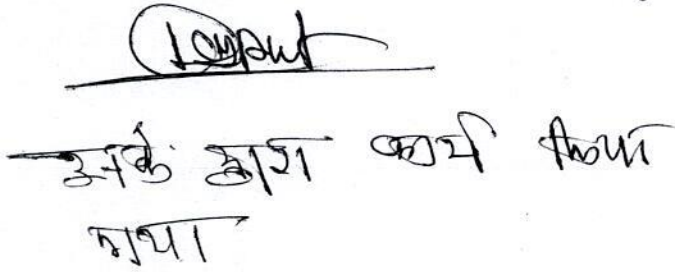 उनके द्वारा कार्य किया
गया